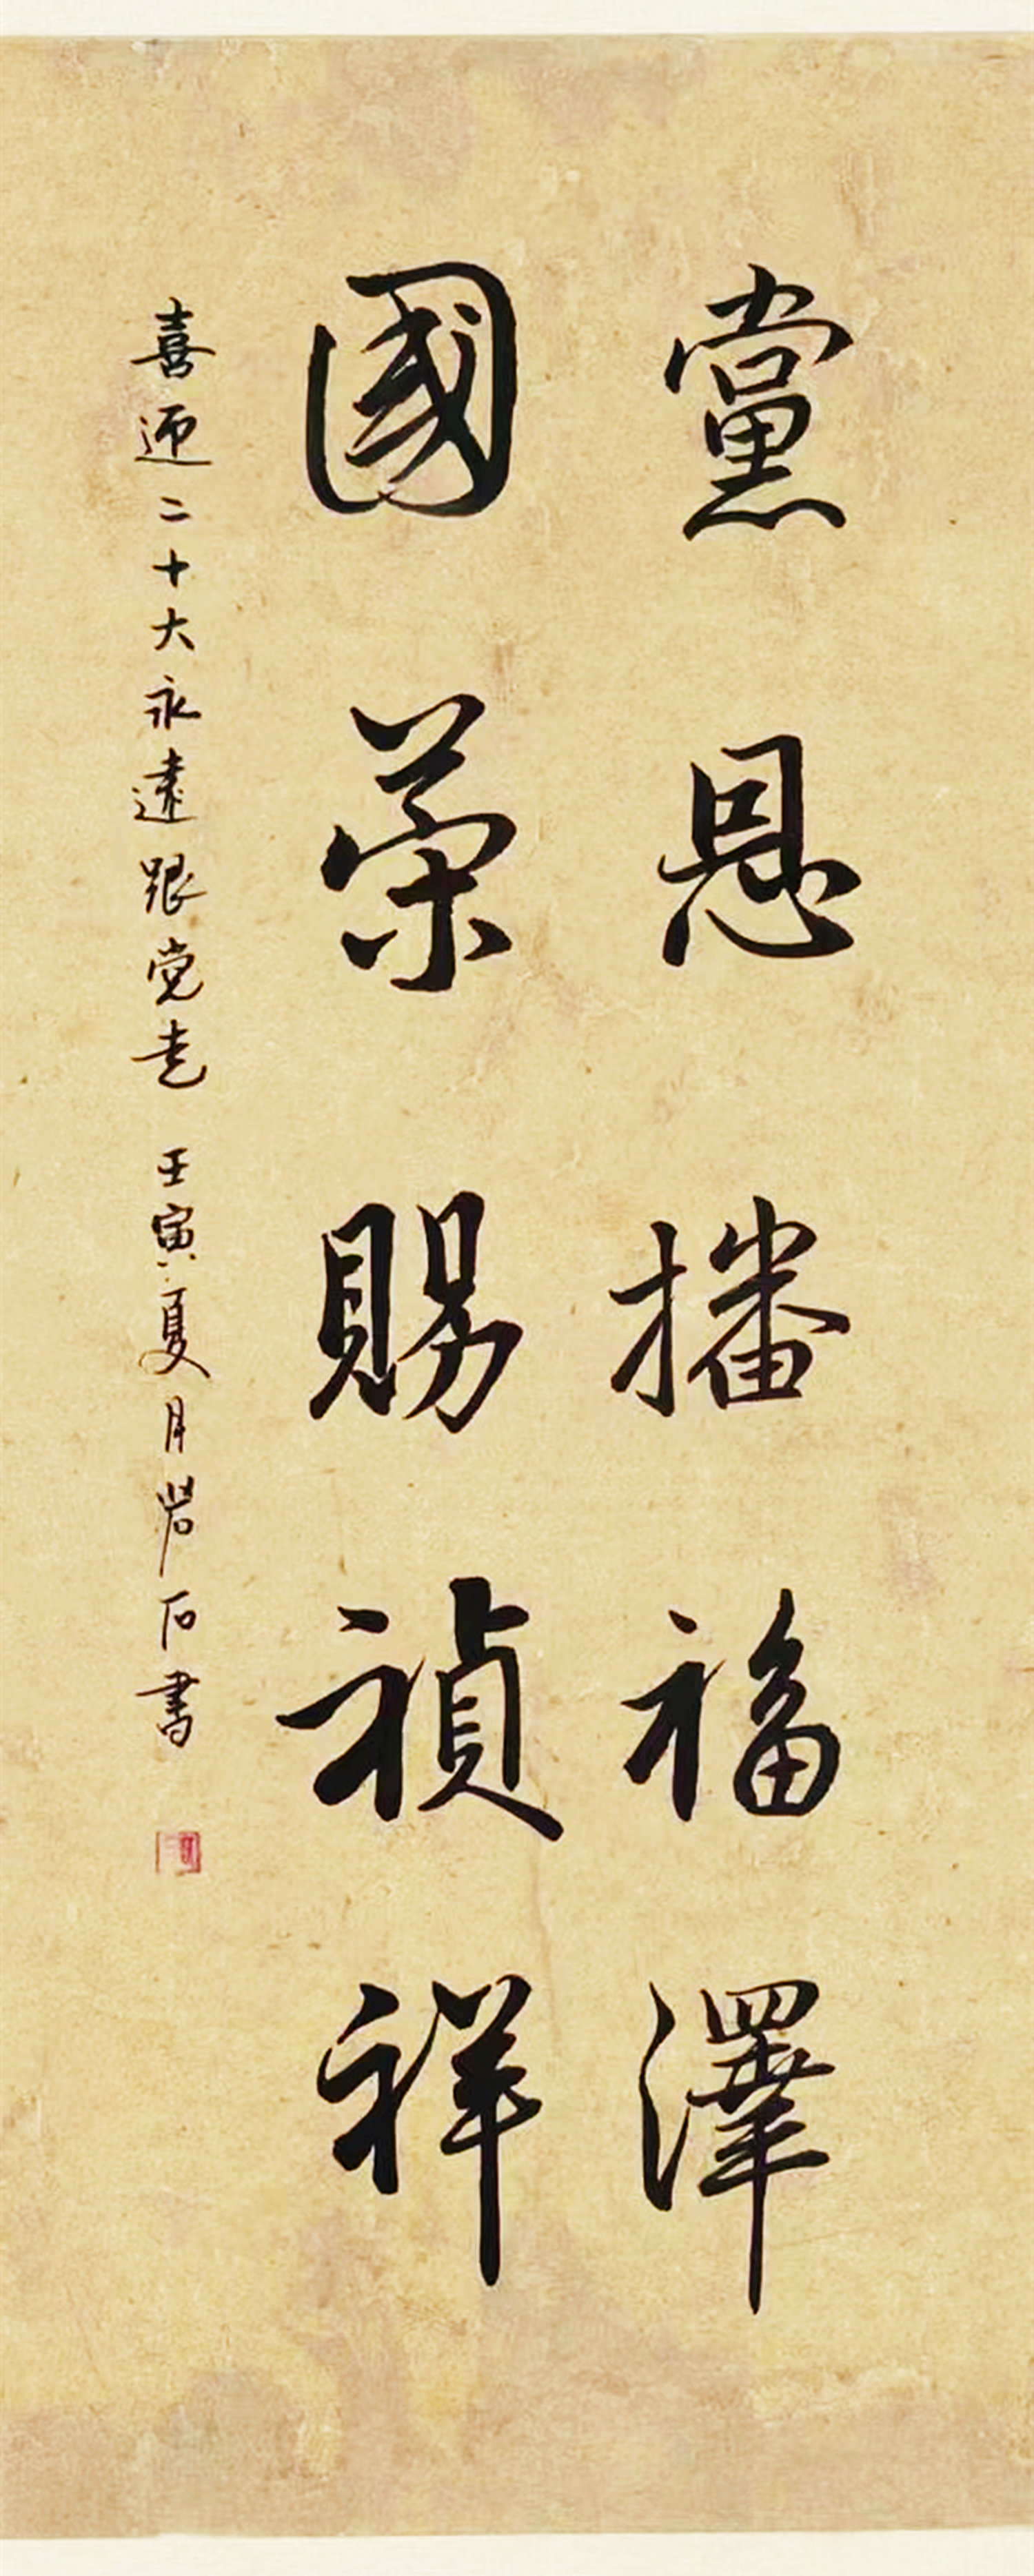 黨恩播福澤
國榮賜禎祥
喜迎二十大永遠跟党走 壬寅夏月岩石書